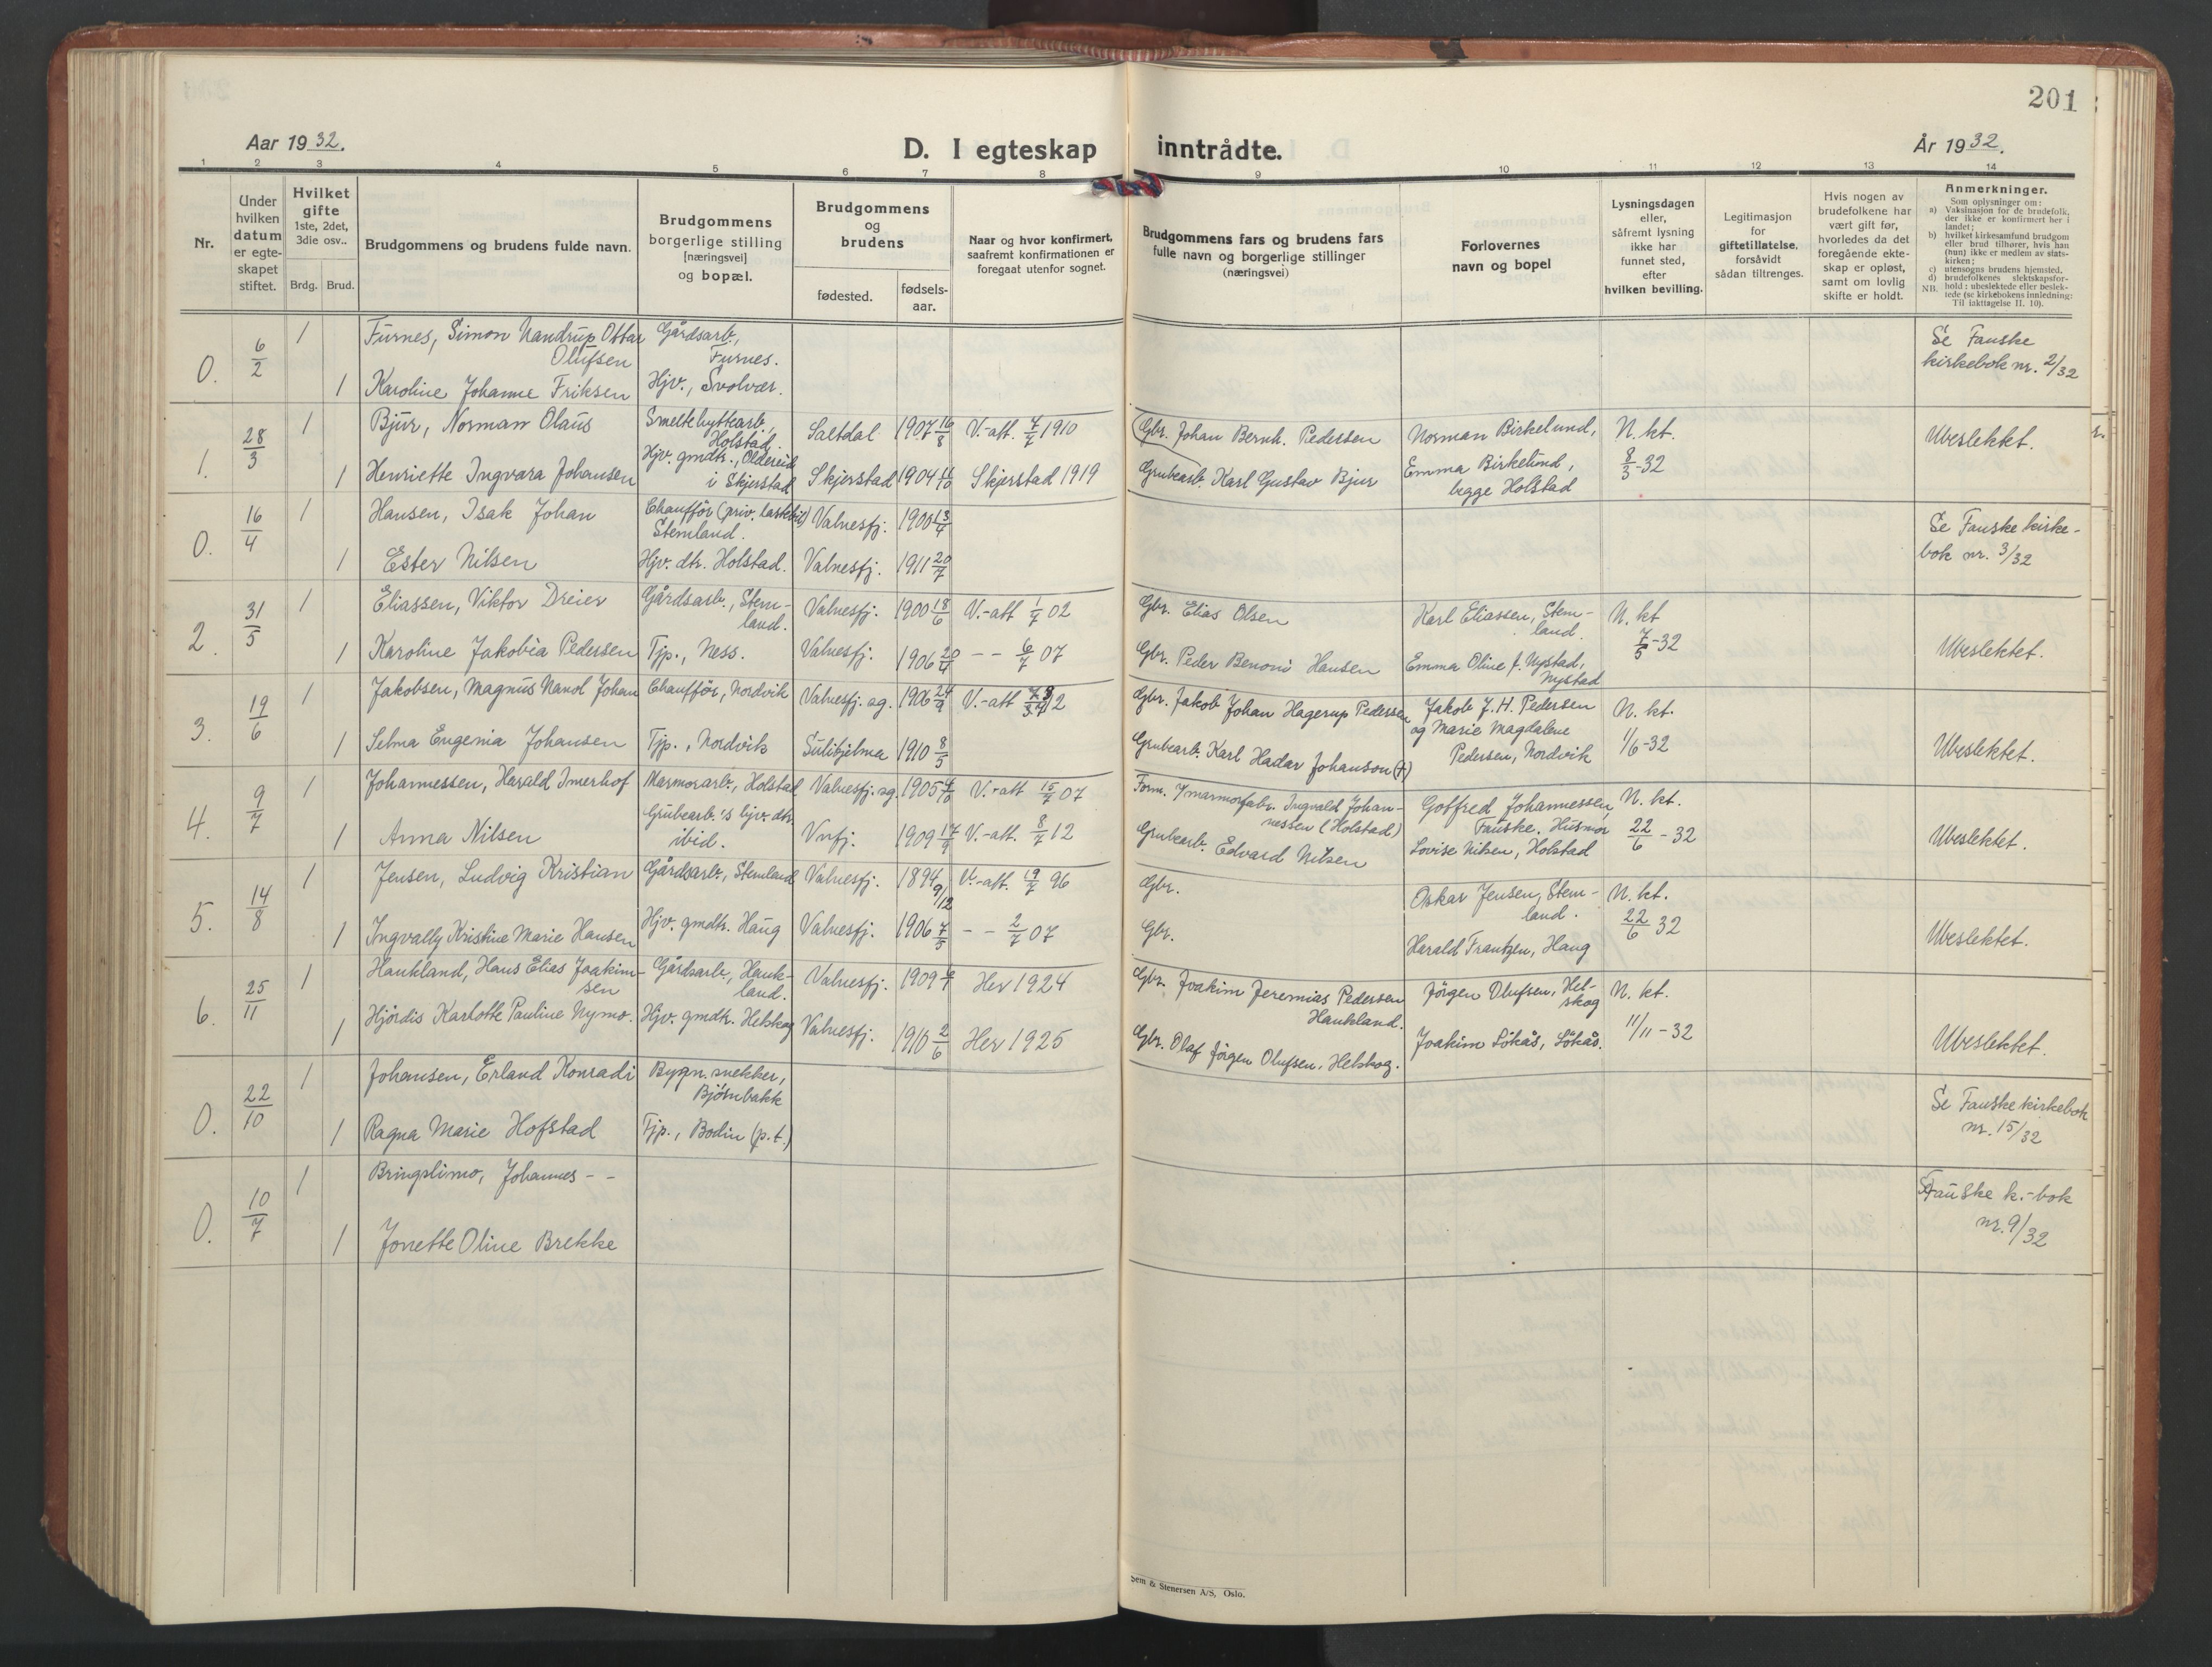 201
Aar 1932.
D. I egteskap inntrådte.
År 1932.
1 2 3 4 5 6 7 8 9 10 11 12 13 14
Nr.
Under
hvilken
datum
er egte-
skapet
stiftet.
Hvilket
gifte
1ste, 2det,
3die osv..
Brdg. Brud.
Brudgommens og brudens fulde navn.
Brudgommens
borgerlige stilling
[næringsvei]
og bopæl.
Brudgommens
og
brudens
fødested.
fødsels-
aar.
Naar og hvor konfirmert,
saafremt konfirmationen er
foregaat utenfor sognet.
Brudgommens fars og brudens fars
fulle navn og borgerlige stillinger
(næringsvei)
Forlovernes
navn og bopel
Lysningsdagen
eller,
såfremt lysning
ikke har
funnet sted,
efter
hvilken bevilling.
Legitimasjon
for
giftetillatelse.
forsåvidt
sådan tiltrenges.
Hvis nogen av
brudefolkene har
vært gift før,
hvorledes da det
foregående ekte-
skap er opløst,
samt om lovlig
skifte er holdt.
Anmerkninger.
Som oplysninger om:
a) Vaksinasjon for de brudefolk,
der ikke er konfirmert her i
landet;
b) hvilket kirkesamfund brudgom
eller brud tilhører, hvis han
(hun) ikke er medlem av stats-
kirken;
c) utensogns brudens hjemsted.
d) brudefolkenes slektskapsfor-
NB. hold: ubeslektede eller beslek-
tede (se kirkebokens innledning:
Til iakttagelse II. 10).
0. 6/2 1 Furnes, Simon Nandrup Ottar
Olufsen
Gårdsarb.,
Furnes.
Se Fauske
kirkebok nr. 2/32
1 Karoline Johanne Friksen Hjv., Svolvær.
1. 28/3 1 Bjur, Norman Olaus Smeltehyttearb.,
Holstad.
Saltdal 1907 16/8 V.-att. 7/7 1910 Gbr. Johan Bernh. Pedersen Norman Birkelund, N. kt.
8/3-32
Ubeslektet.
1 Henriette Ingvara Johansen Hjv. gmdtr., Oldereid
i Skjerstad
Skjerstad 1904 11/10 Skjerstad 1919 Grubearb. Karl Gustav Bjur Emma Birkelund,
begge Holstad
0. 16/4 1 Hansen, Isak Johan Chauffør (priv. lastebil)
Stemland.
Valnesfj. 1900 13/4 Se Fauske kirke-
bok nr. 3/32
1 Ester Nilsen Hjv. dtr. Holstad. Valnesfj. 1911 20/7
2. 31/5 1 Eliassen, Viktor Dreier Gårdsarb., Stem-
land.
Valnesfj. 1900 18/6 V.-att 1/7 02 Gbr. Elias Olsen Karl Eliassen, Stem-
land.
N. kt
7/5-32
1 Karoline Jakobia Pedersen Tjp., Ness. Valnesfj. 1906 20/4 - - 6/7 07 Gbr. Peder Benoni Hansen Emma Oline f. Nystad,
Nystad
Ubeslektet.
3. 19/6 1 Jakobsen, Magnus Nanol Johan Chauffør, Nordvik Valnesfj. sg. 1906 24/9 V.-att Gbr. Jakob Johan Hagerup Pedersen Jakob J. H. Pedersen
og Marie Magdalene
Pedersen, Nordvik
N. kt.
1/6-32
1 Selma Eugenia Johansen Tjp., Nordvik Sulitjelma 1910 8/5 Grubearb. Karl Hadar Johanson (†) Ubeslektet.
4. 9/7 1 Johannessen, Harald Imerhof Marmorarb., Holstad Valnesfj. sg. 1905 4/10 V.-att 15/7 07 Form. v/marmorfabr. Ingvald Johan-
nessen (Holstad)
Gotfred Johannessen,
Fauske. Husmor
N. kt.
22/6 - 32
1 Anna Nilsen Grubearb.'s hjv. dtr.
ibid.
Vnfj. 1909 17/9 V.-att. 8/7 12 Grubearb. Edvard Nilsen Lovise Nilsen, Holstad Ubeslektet.
5. 14/8 1 Jensen, Ludvig Kristian Gårdsarb., Stemland Valnesfj. 1894 9/12 V.-att. 19/7 96 Gbr. Oskar Jensen, Stem-
land.
N. kt.
22/6 32
1 Ingvally Kristine Marie Hansen Hjv. gmdtr. Haug Valnesfj. 1906 7/5 - - 2/7 07 Gbr. Harald Frantzen, Haug Ubeslektet.
6. 25/11 1 Haukland, Hans Elias Joakim-
sen
Gårdsarb., Hauk-
land.
Valnesfj. 1909 Her 1924 Gbr. Joakim Jeremias Pedersen
Haukland.
Jörgen Olufsen, Hel-
skog
N. kt.
11/11-32
1 Hjördis Karlotte Pauline Nymo. Hjv. gmdtr. Helskog Valnesfj. 1910 2/6 Her 1925 Gbr. Olaf Jörgen Olufsen, Helskog. Joakim Lökås, Lökås. Ubeslektet.
0. 22/10 1 Johansen, Erland Konradi Bygn. snekker,
Bjørnbakk
Se Fauske kirkebok
nr. 15/32
1 Ragna Marie Hofstad Tjp., Bodin (p.t.)
0. 10/7 1 Bringslimo, Johannes - - Fauske k.-bok
nr. 9/32
1 Jonette Oline Brekke
Sem & Stenersen A/S, Oslo.